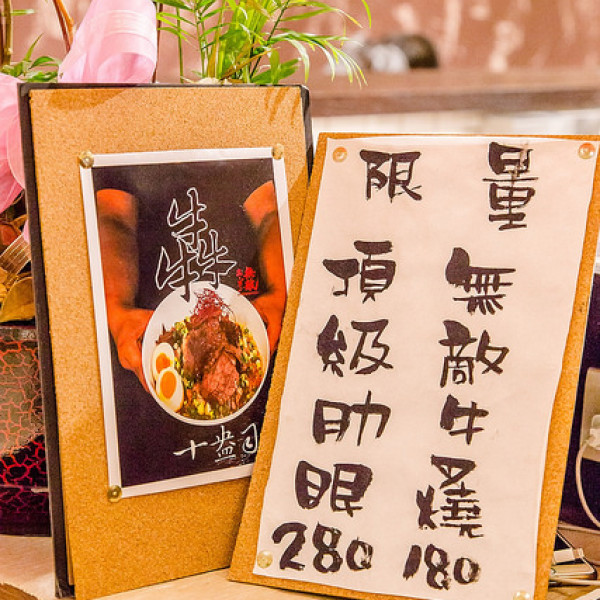 犇
十盎司
限量
無敵牛叉燒
180
頂級肋眼
280